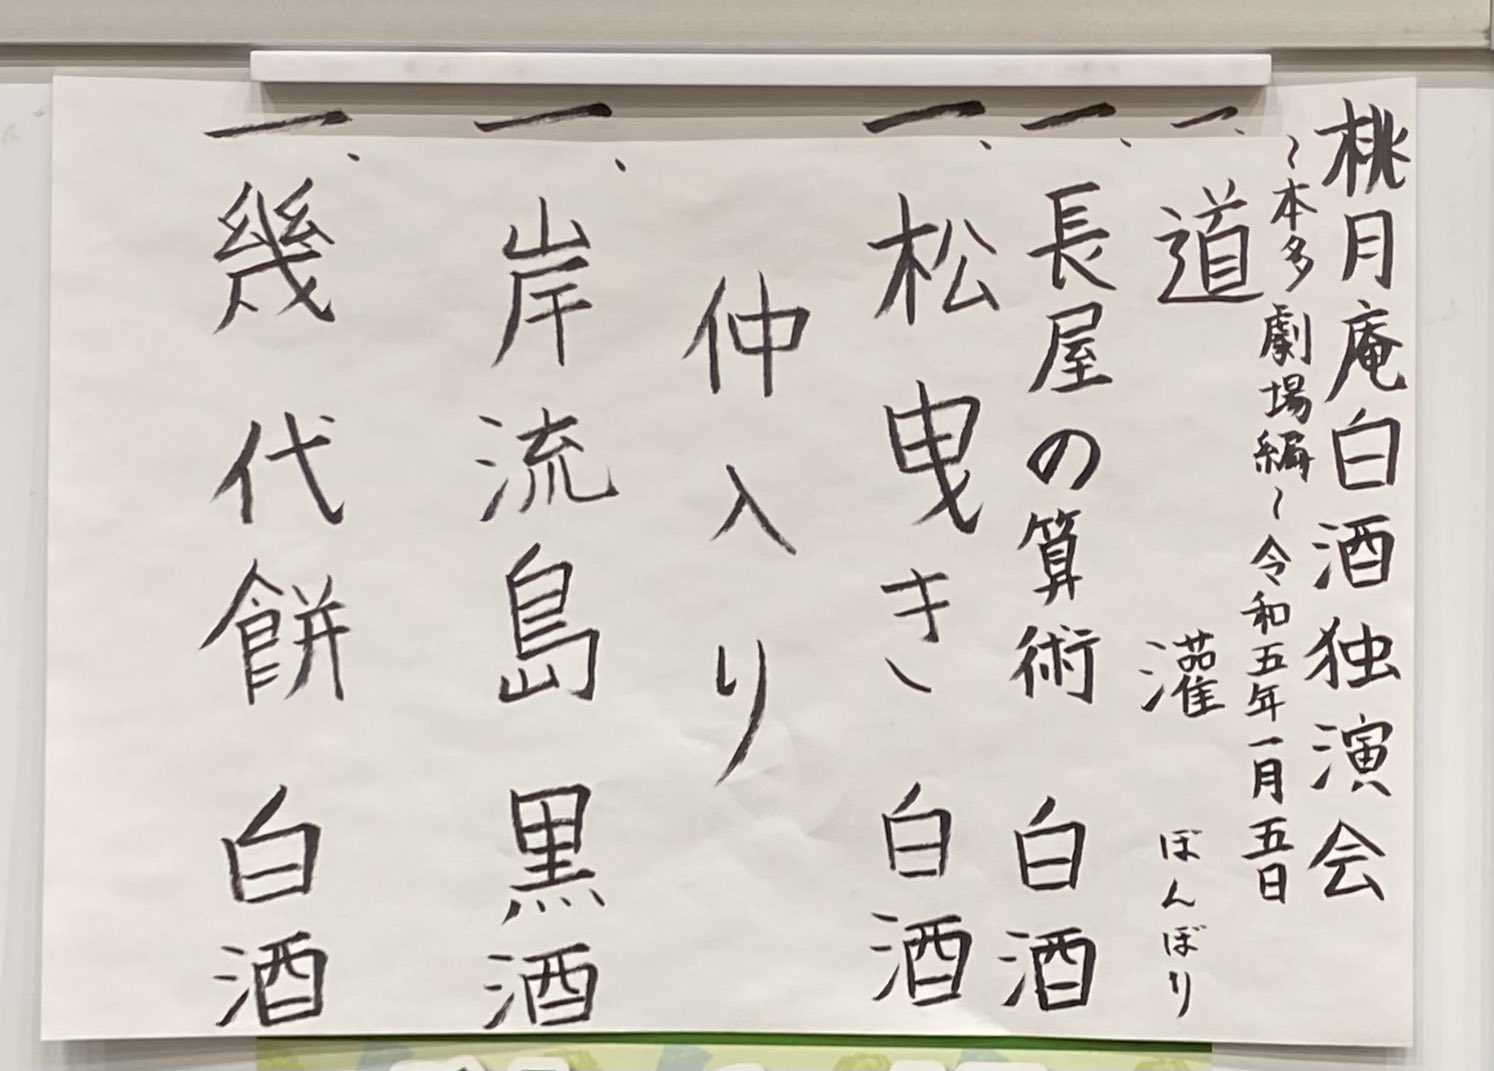 桃月庵白酒独演会
~本多劇場編~令和五年一月五日
一、道灌 ぼんぼり
一、長屋の算術 白酒
一、松曳き 白酒
仲入り
一、岸流島 黒酒
一、幾代餅 白酒